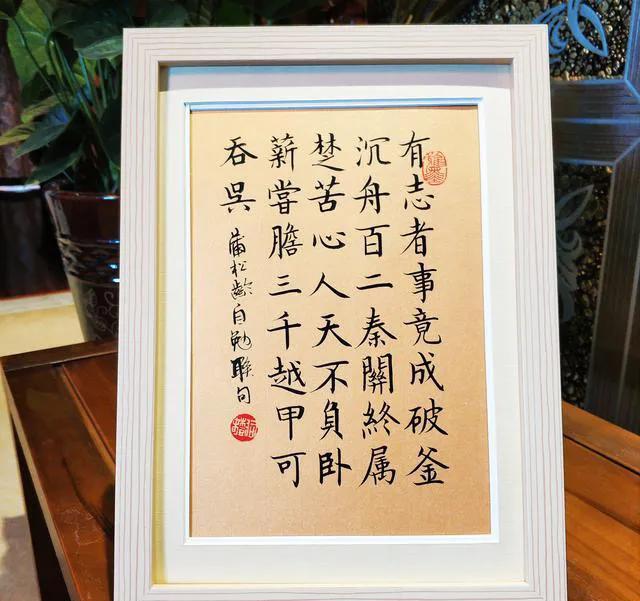 有志者事竟成破釜
沉舟百二秦關終属
楚苦心人天不負卧
薪嘗膽三千越甲可
吞呉
蒲松齡自勉聯句